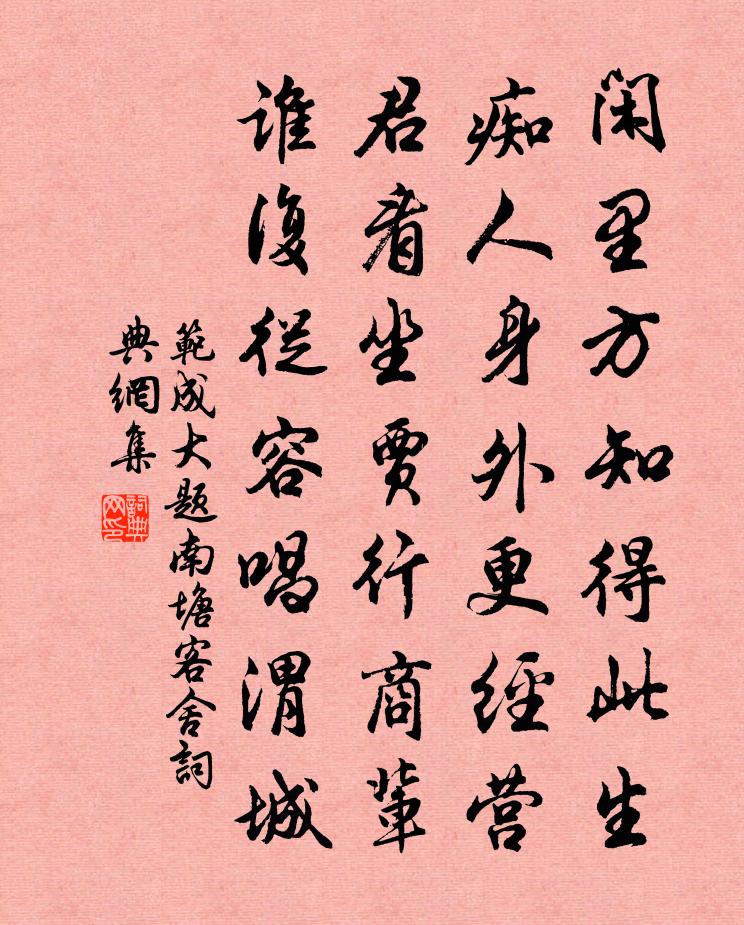 闲里方知得此生
痴人身外更經营
君看坐賈行商輩
谁復從容唱渭城
範成大题南塘客舍詞
典網集
詞典网印